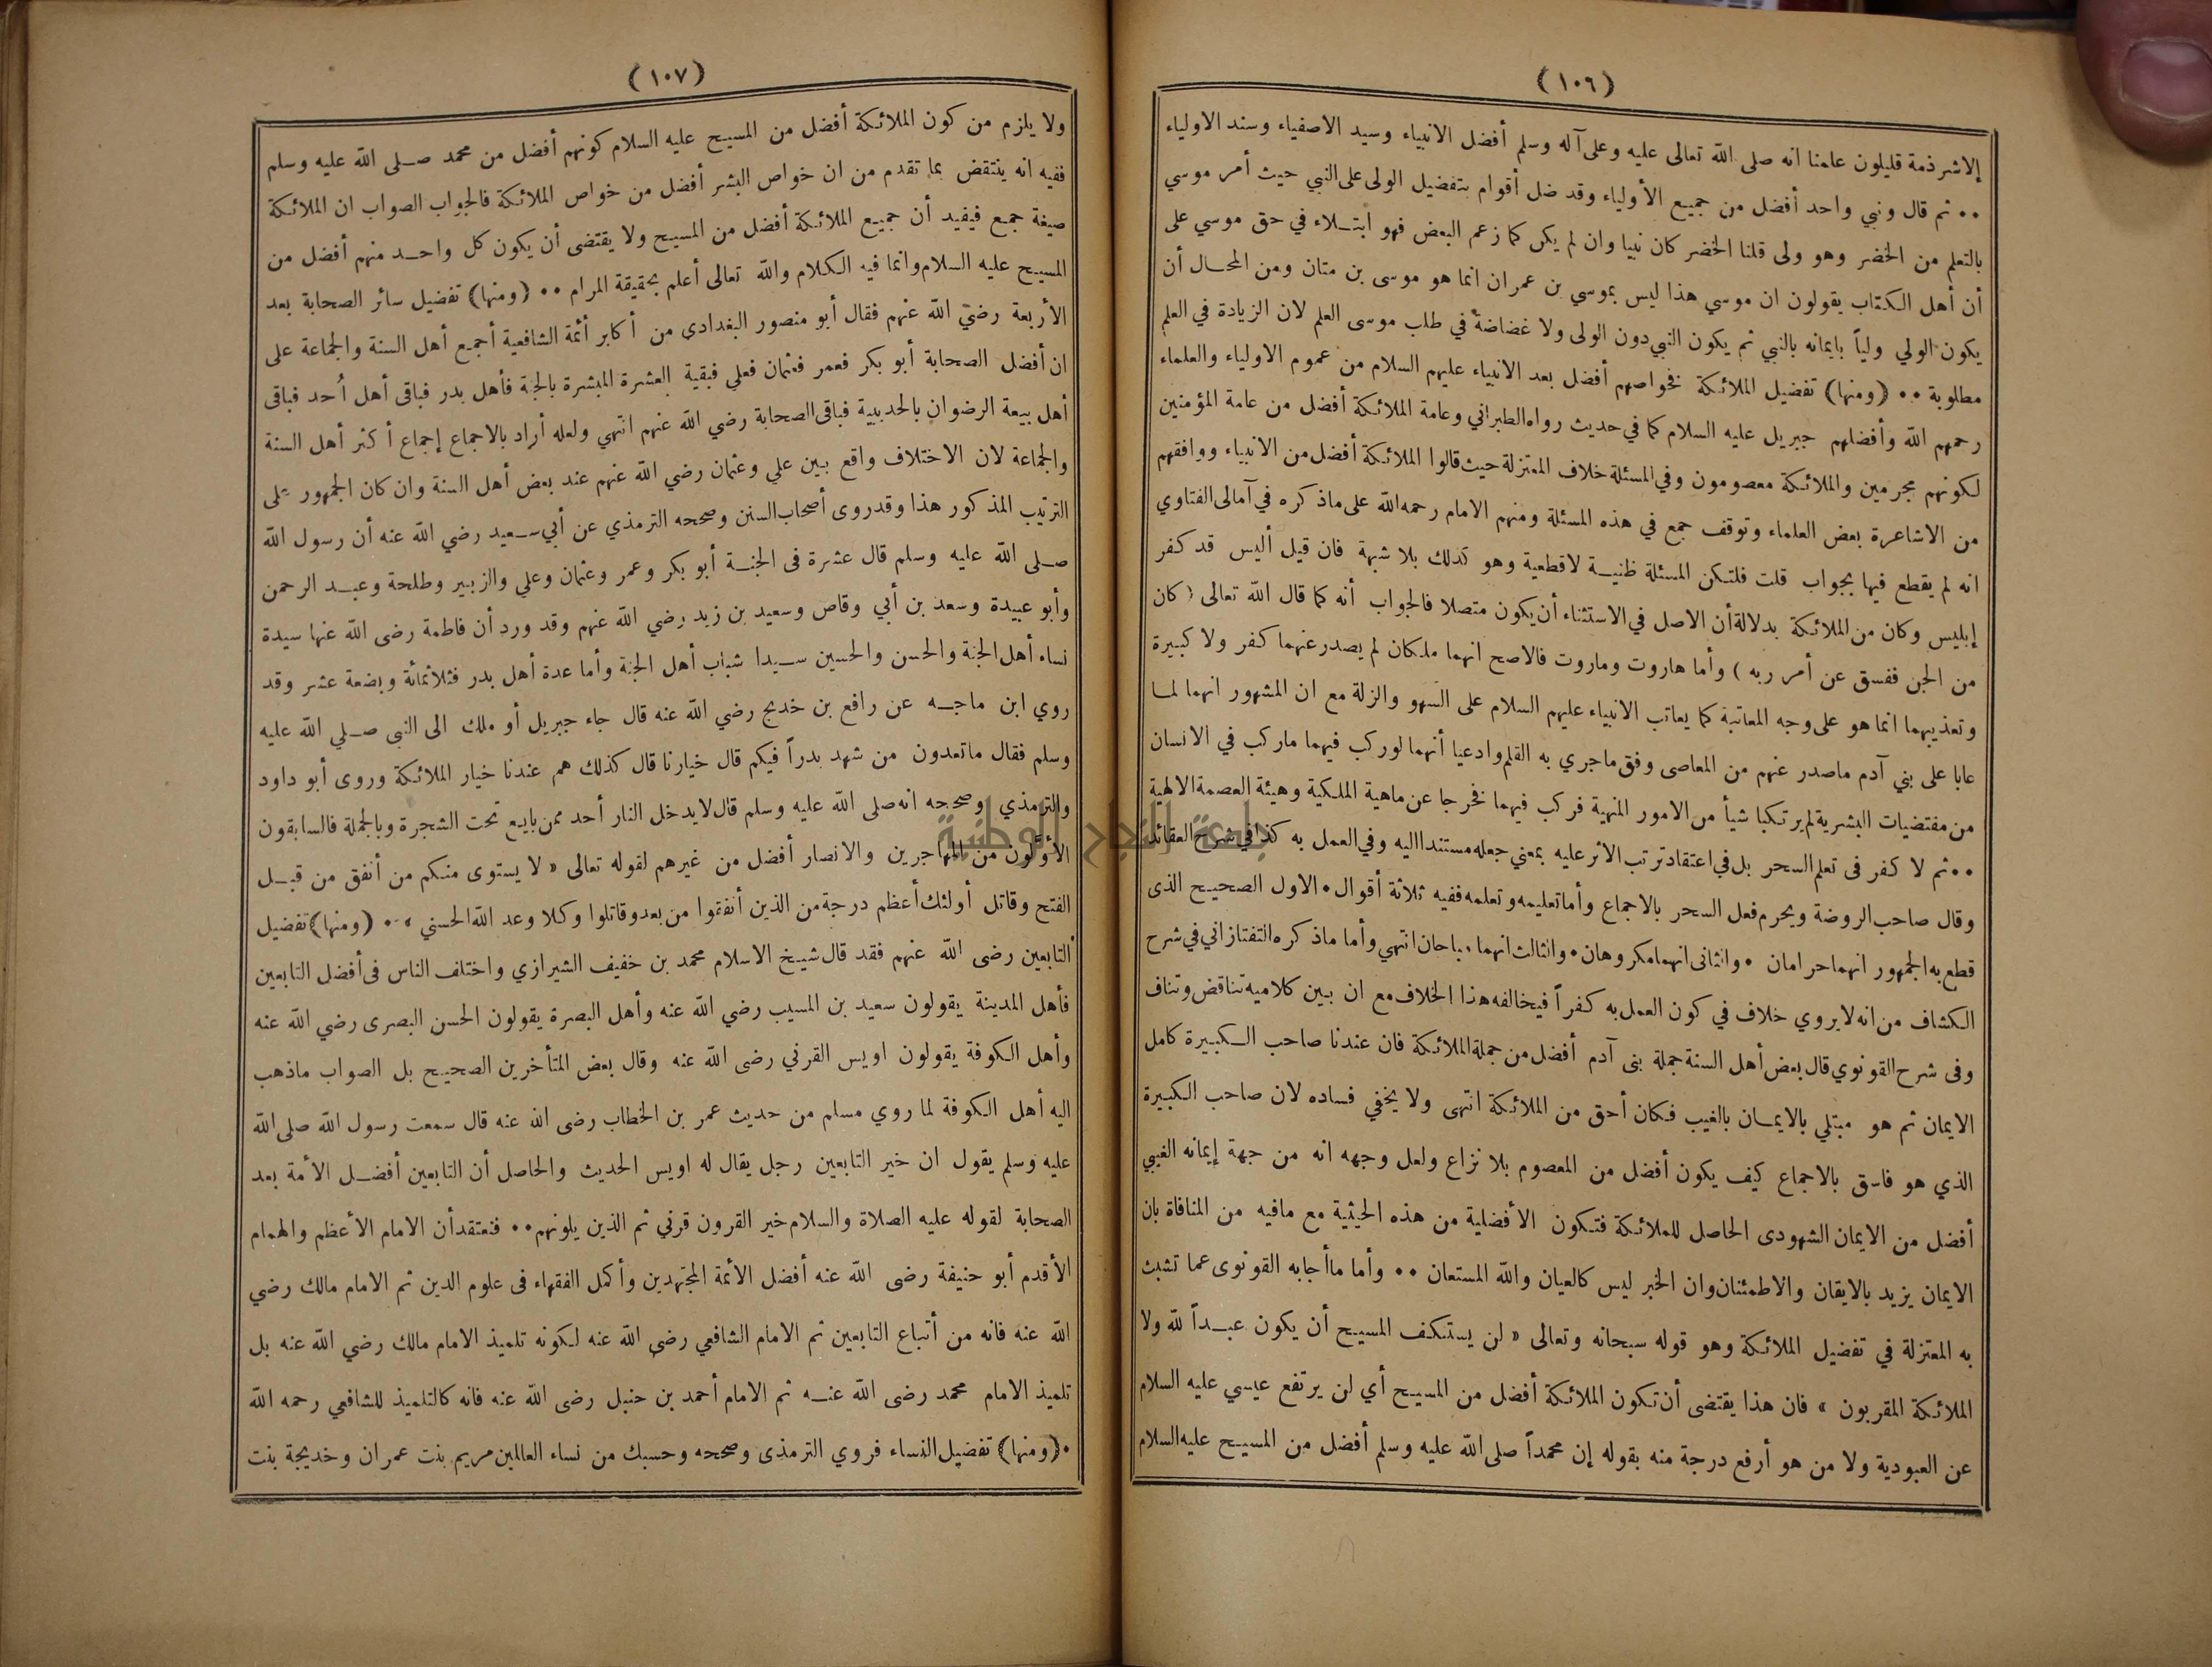 (١٠٦)
إلا شرذمة قليلون علمنا انه صلى الله تعالى عليه وعلى آله وسلم أفضل الانبياء وسيد الاصفياء وسند الاولياء
٠٠ ثم قال ونبي واحد أفضل من جميع الأولياء وقد ضل أقوام بتفضيل الولى على النبي حيث أمر موسي
بالتعلم من الخضر وهو ولى قلنا الخضر كان نبيا وان لم يكن كما زعم البعض فهو ابتلاء في حق موسي على
أن أهل الكتاب يقولون ان موسي هذا ليس بموسي بن عمران انما هو موسى بن متان ومن المحال أن
يكون الولي ولياً بايمانه بالنبي ثم يكون النبي دون الولى ولا غضاضة في طلب موسى العلم لان الزيادة في العلم
مطلوبة ٠٠ (ومنها) تفضيل الملائكة فخواصهم أفضل بعد الانبياء عليهم السلام من عموم الاولياء والعلماء
رحمهم الله وأفضلهم جبريل عليه السلام كما في حديث رواه الطبراني وعامة الملائكة أفضل من عامة المؤمنين
لكونهم مجرمين والملائكة معصومون وفي المسئلة خلاف المعتزلة حيث قالوا الملائكة أفضل من الانبياء ووافقهم
من الاشاعرة بعض العلماء وتوقف جمع في هذه المسئلة ومنهم الامام رحمه الله على ماذكره في آمالى الفتاوي
انه لم يقطع فيها بجواب قلت فلتكن المسئلة ظنية لاقطعية وهو كذلك بلا شبهة فان قيل أليس قد كفر
إبليس وكان من الملائكة بدلالة أن الاصل في الاستثناء أن يكون متصلا فالجواب أنه كما قال الله تعالى (كان
من الجن ففسق عن أمر ربه) وأما هاروت وماروت فالاصح انهما ملكان لم يصدر عنهما كفر ولا كبيرة
وتعذيبهما انما هو على وجه المعاتبة كما يعاتب الانبياء عليهم السلام على السهو والزلة مع ان المشهور انهما لما
عابا على بني آدم ماصدر عنهم من المعاصى وفق ماجري به القلم وادعيا أنهما لو ركب فيهما ماركب في الانسان
من مقتضيات البشرية لم يرتكبا شيأ من الامور المنهية فركب فيهما فخرجا عن ماهية الملكية وهيئة العصمة الالهية
٠٠ ثم لا كفر فى تعلم السحر بل في اعتقاد ترتب الاثر عليه بمعني جعله مستندا اليه وفي العمل به كذا في شرح العقائد
وقال صاحب الروضة ويحرم فعل السحر بالاجماع وأما تعليمه وتعلمه ففيه ثلاثة أقوال ٠ الاول الصحيح الذى
قطع به الجمهور انهما حرامان ٠ والثانى انهما مكروهان ٠ والثالث انهما مباحان انتهي وأما ماذكره التفتازاني في شرح
الكشاف من انه لايروي خلاف في كون العمل به كفراً فيخالفه هذا الخلاف مع ان بين كلاميه تناقض وتناف
وفى شرح القونوي قال بعض أهل السنة جملة بنى آدم أفضل من جملة الملائكة فان عندنا صاحب الكبيرة كامل
الايمان ثم هو مبتلي بالايمان بالغيب فكان أحق من الملائكة انتهى ولا يخفي فساده لان صاحب الكبيرة
الذي هو فاسق بالاجماع كيف يكون أفضل من المعصوم بلا نزاع ولعل وجهه انه من جهة إيمانه الغيبي
أفضل من الايمان الشهودى الحاصل للملائكة فتكون الأفضلية من هذه الحيثية مع مافيه من المنافاة بان
الايمان يزيد بالايقان والاطمئنان وان الخبر ليس كالعيان والله المستعان ٠٠ وأما ماأجابه القونوى عما تشبث
به المعتزلة في تفضيل الملائكة وهو قوله سبحانه وتعالى « لن يستنكف المسيح أن يكون عبداً لله ولا
الملائكة المقربون » فان هذا يقتضى أن تكون الملائكة أفضل من المسيح أي لن يرتفع عيسي عليه السلام
عن العبودية ولا من هو أرفع درجة منه بقوله إن محمداً صلى الله عليه وسلم أفضل من المسيح عليه السلام
(١٠٧)
ولا يلزم من كون الملائكة أفضل من المسيح عليه السلام كونهم أفضل من محمد صلى الله عليه وسلم
ففيه انه ينتقض بما تقدم من ان خواص البشر أفضل من خواص الملائكة فالجواب الصواب ان الملائكة
صيغة جمع فيفيد أن جميع الملائكة أفضل من المسيح ولا يقتضى أن يكون كل واحد منهم أفضل من
المسيح عليه السلام وانما فيه الكلام والله تعالى أعلم بحقيقة المرام ٠٠ (ومنها) تفضيل سائر الصحابة بعد
الأربعة رضي الله عنهم فقال أبو منصور البغدادي من أكابر أئمة الشافعية أجمع أهل السنة والجماعة على
ان أفضل الصحابة أبو بكر فعمر فعثمان فعلي فبقية العشرة المبشرة بالجنة فأهل بدر فباقى أهل أُحد فباقى
أهل بيعة الرضوان بالحديبية فباقى الصحابة رضي الله عنهم انتهي ولعله أراد بالاجماع إجماع أكثر أهل السنة
والجماعة لان الاختلاف واقع بين علي وعثمان رضي الله عنهم عند بعض أهل السنة وان كان الجمهور على
الترتيب المذكور هذا وقد روى أصحاب السنن وصححه الترمذي عن أبي سعيد رضي الله عنه أن رسول الله
صلى الله عليه وسلم قال عشرة فى الجنة أبو بكر وعمر وعثمان وعلي والزبير وطلحة وعبد الرحمن
وأبو عبيدة وسعد بن أبي وقاص وسعيد بن زيد رضي الله عنهم وقد ورد أن فاطمة رضى الله عنها سيدة
نساء أهل الجنة والحسن والحسين سيدا شباب أهل الجنة وأما عدة أهل بدر فثلاثمائة وبضعة عشر وقد
روي ابن ماجه عن رافع بن خديج رضي الله عنه قال جاء جبريل أو ملك الى النبى صلي الله عليه
وسلم فقال ماتعدون من شهد بدراً فيكم قال خيارنا قال كذلك هم عندنا خيار الملائكة وروى أبو داود
والترمذي وصححه انه صلى الله عليه وسلم قال لايدخل النار أحد ممن بايع تحت الشجرة وبالجملة فالسابقون
الأولون من المهاجرين والانصار أفضل من غيرهم لقوله تعالى « لا يستوى منكم من أنفق من قبل
الفتح وقاتل أولئك أعظم درجة من الذين أنفقوا من بعد وقاتلوا وكلا وعد الله الحسني » ٠٠ (ومنها) تفضيل
التابعين رضى الله عنهم فقد قال شيخ الاسلام محمد بن خفيف الشيرازي واختلف الناس فى أفضل التابعين
فأهل المدينة يقولون سعيد بن المسيب رضي الله عنه وأهل البصرة يقولون الحسن البصرى رضي الله عنه
وأهل الكوفة يقولون اويس القرني رضى الله عنه وقال بعض المتأخرين الصحيح بل الصواب ماذهب
اليه أهل الكوفة لما روي مسلم من حديث عمر بن الخطاب رضى الله عنه قال سمعت رسول الله صلى الله
عليه وسلم يقول ان خير التابعين رجل يقال له اويس الحديث والحاصل أن التابعين أفضل الأمة بعد
الصحابة لقوله عليه الصلاة والسلام خير القرون قرني ثم الذين يلونهم ٠٠ فنعتقد أن الامام الأعظم والهمام
الأقدم أبو حنيفة رضى الله عنه أفضل الأئمة المجتهدين وأكمل الفقهاء فى علوم الدين ثم الامام مالك رضي
الله عنه فانه من أتباع التابعين ثم الامام الشافعي رضى الله عنه لكونه تلميذ الامام مالك رضي الله عنه بل
تلميذ الامام محمد رضى الله عنه ثم الامام أحمد بن حنبل رضى الله عنه فانه كالتلميذ للشافعي رحمه الله
٠ (ومنها) تفضيل النساء فروي الترمذى وصححه وحسبك من نساء العالمين مريم بنت عمران وخديجة بنت
جامعة النجاح الوطنية